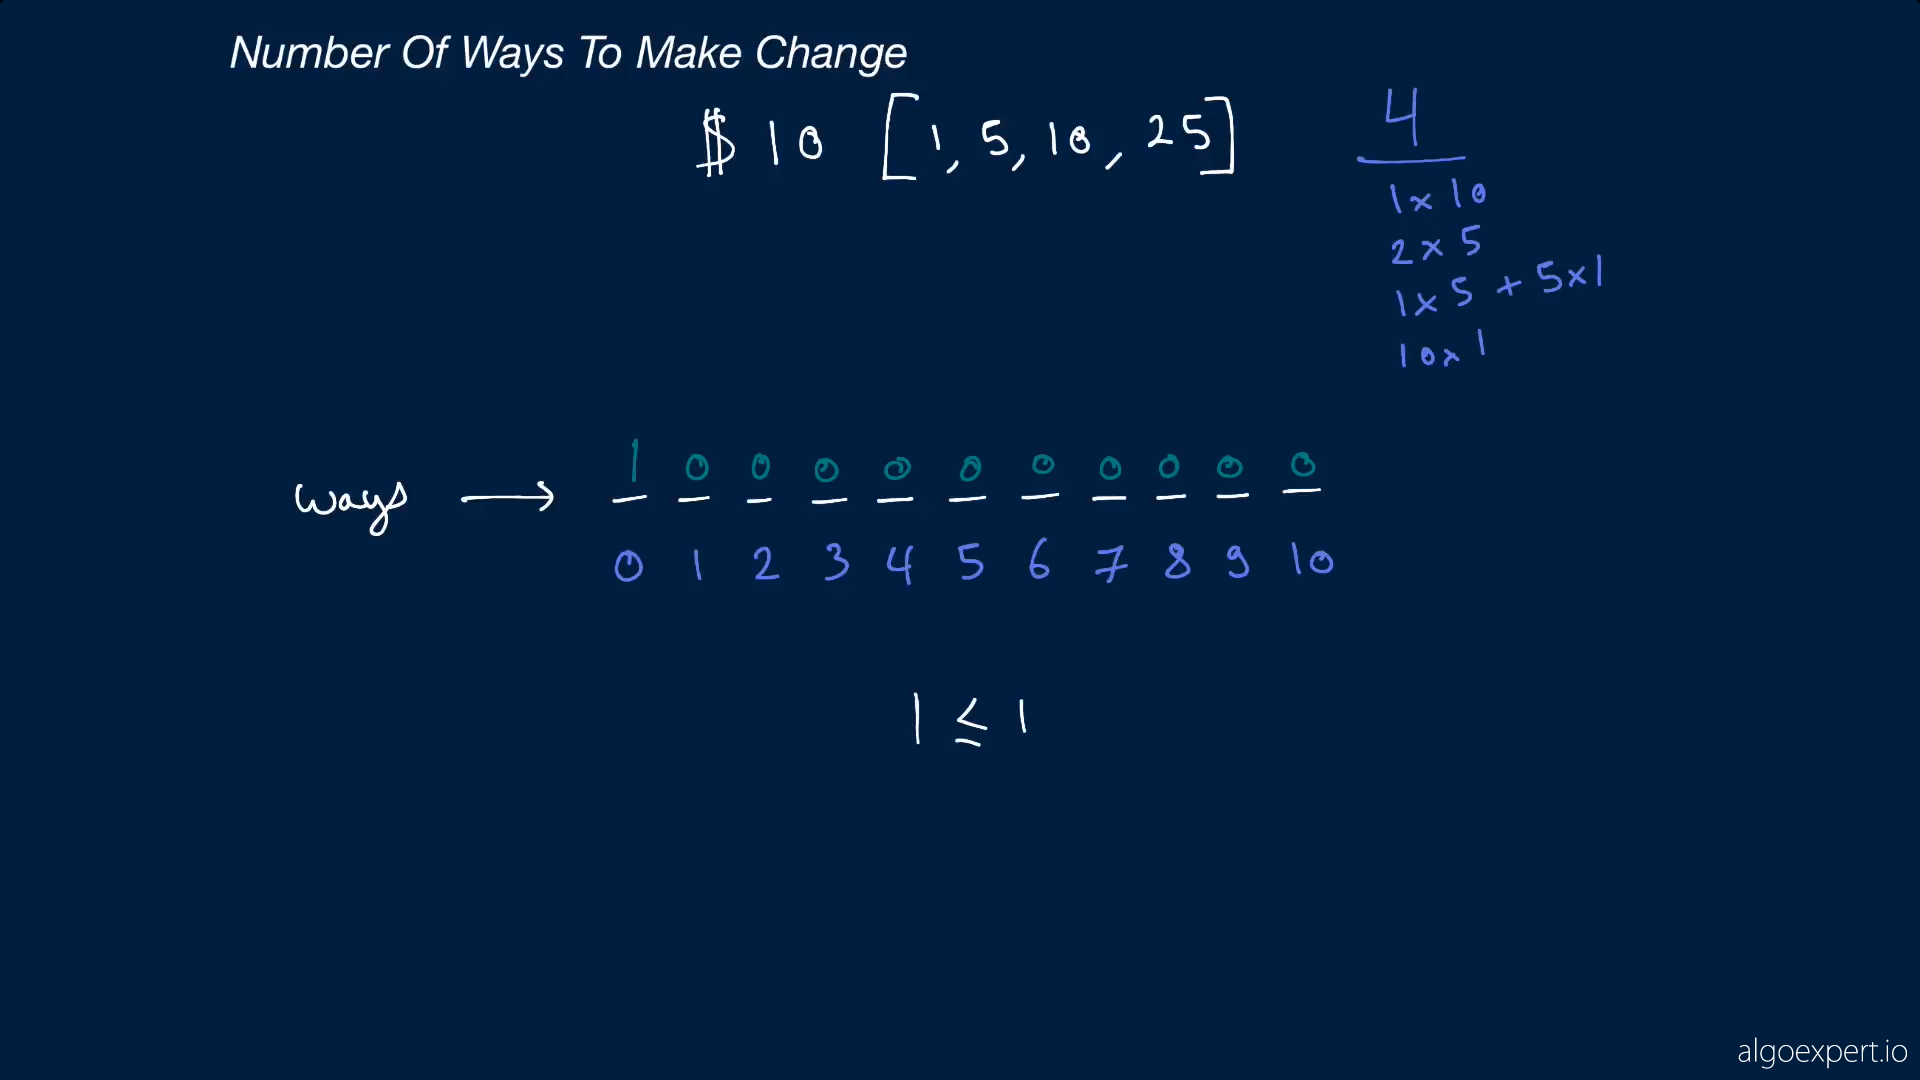 Number Of Ways To Make Change
$ 10 [1, 5, 10, 25]
4
1 x 10
2 x 5
1 x 5 + 5 x 1
10 x 1
ways → 1 0 0 0 0 0 0 0 0 0 0
0 1 2 3 4 5 6 7 8 9 10
1 ≤ 1
algoexpert.io